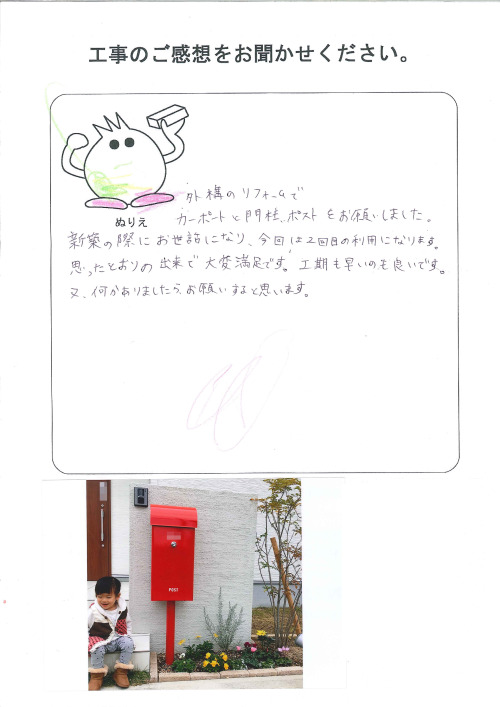 工事のご感想をお聞かせください。
ぬりえ
外構のリフォームで
カーポートと門柱、ポストをお願いしました。
新築の際にお世話になり、今回は2回目の利用になります。
思ったとおりの出来で大変満足です。工期も早いのも良いです。
又、何かありましたら、お願いすると思います。
POST